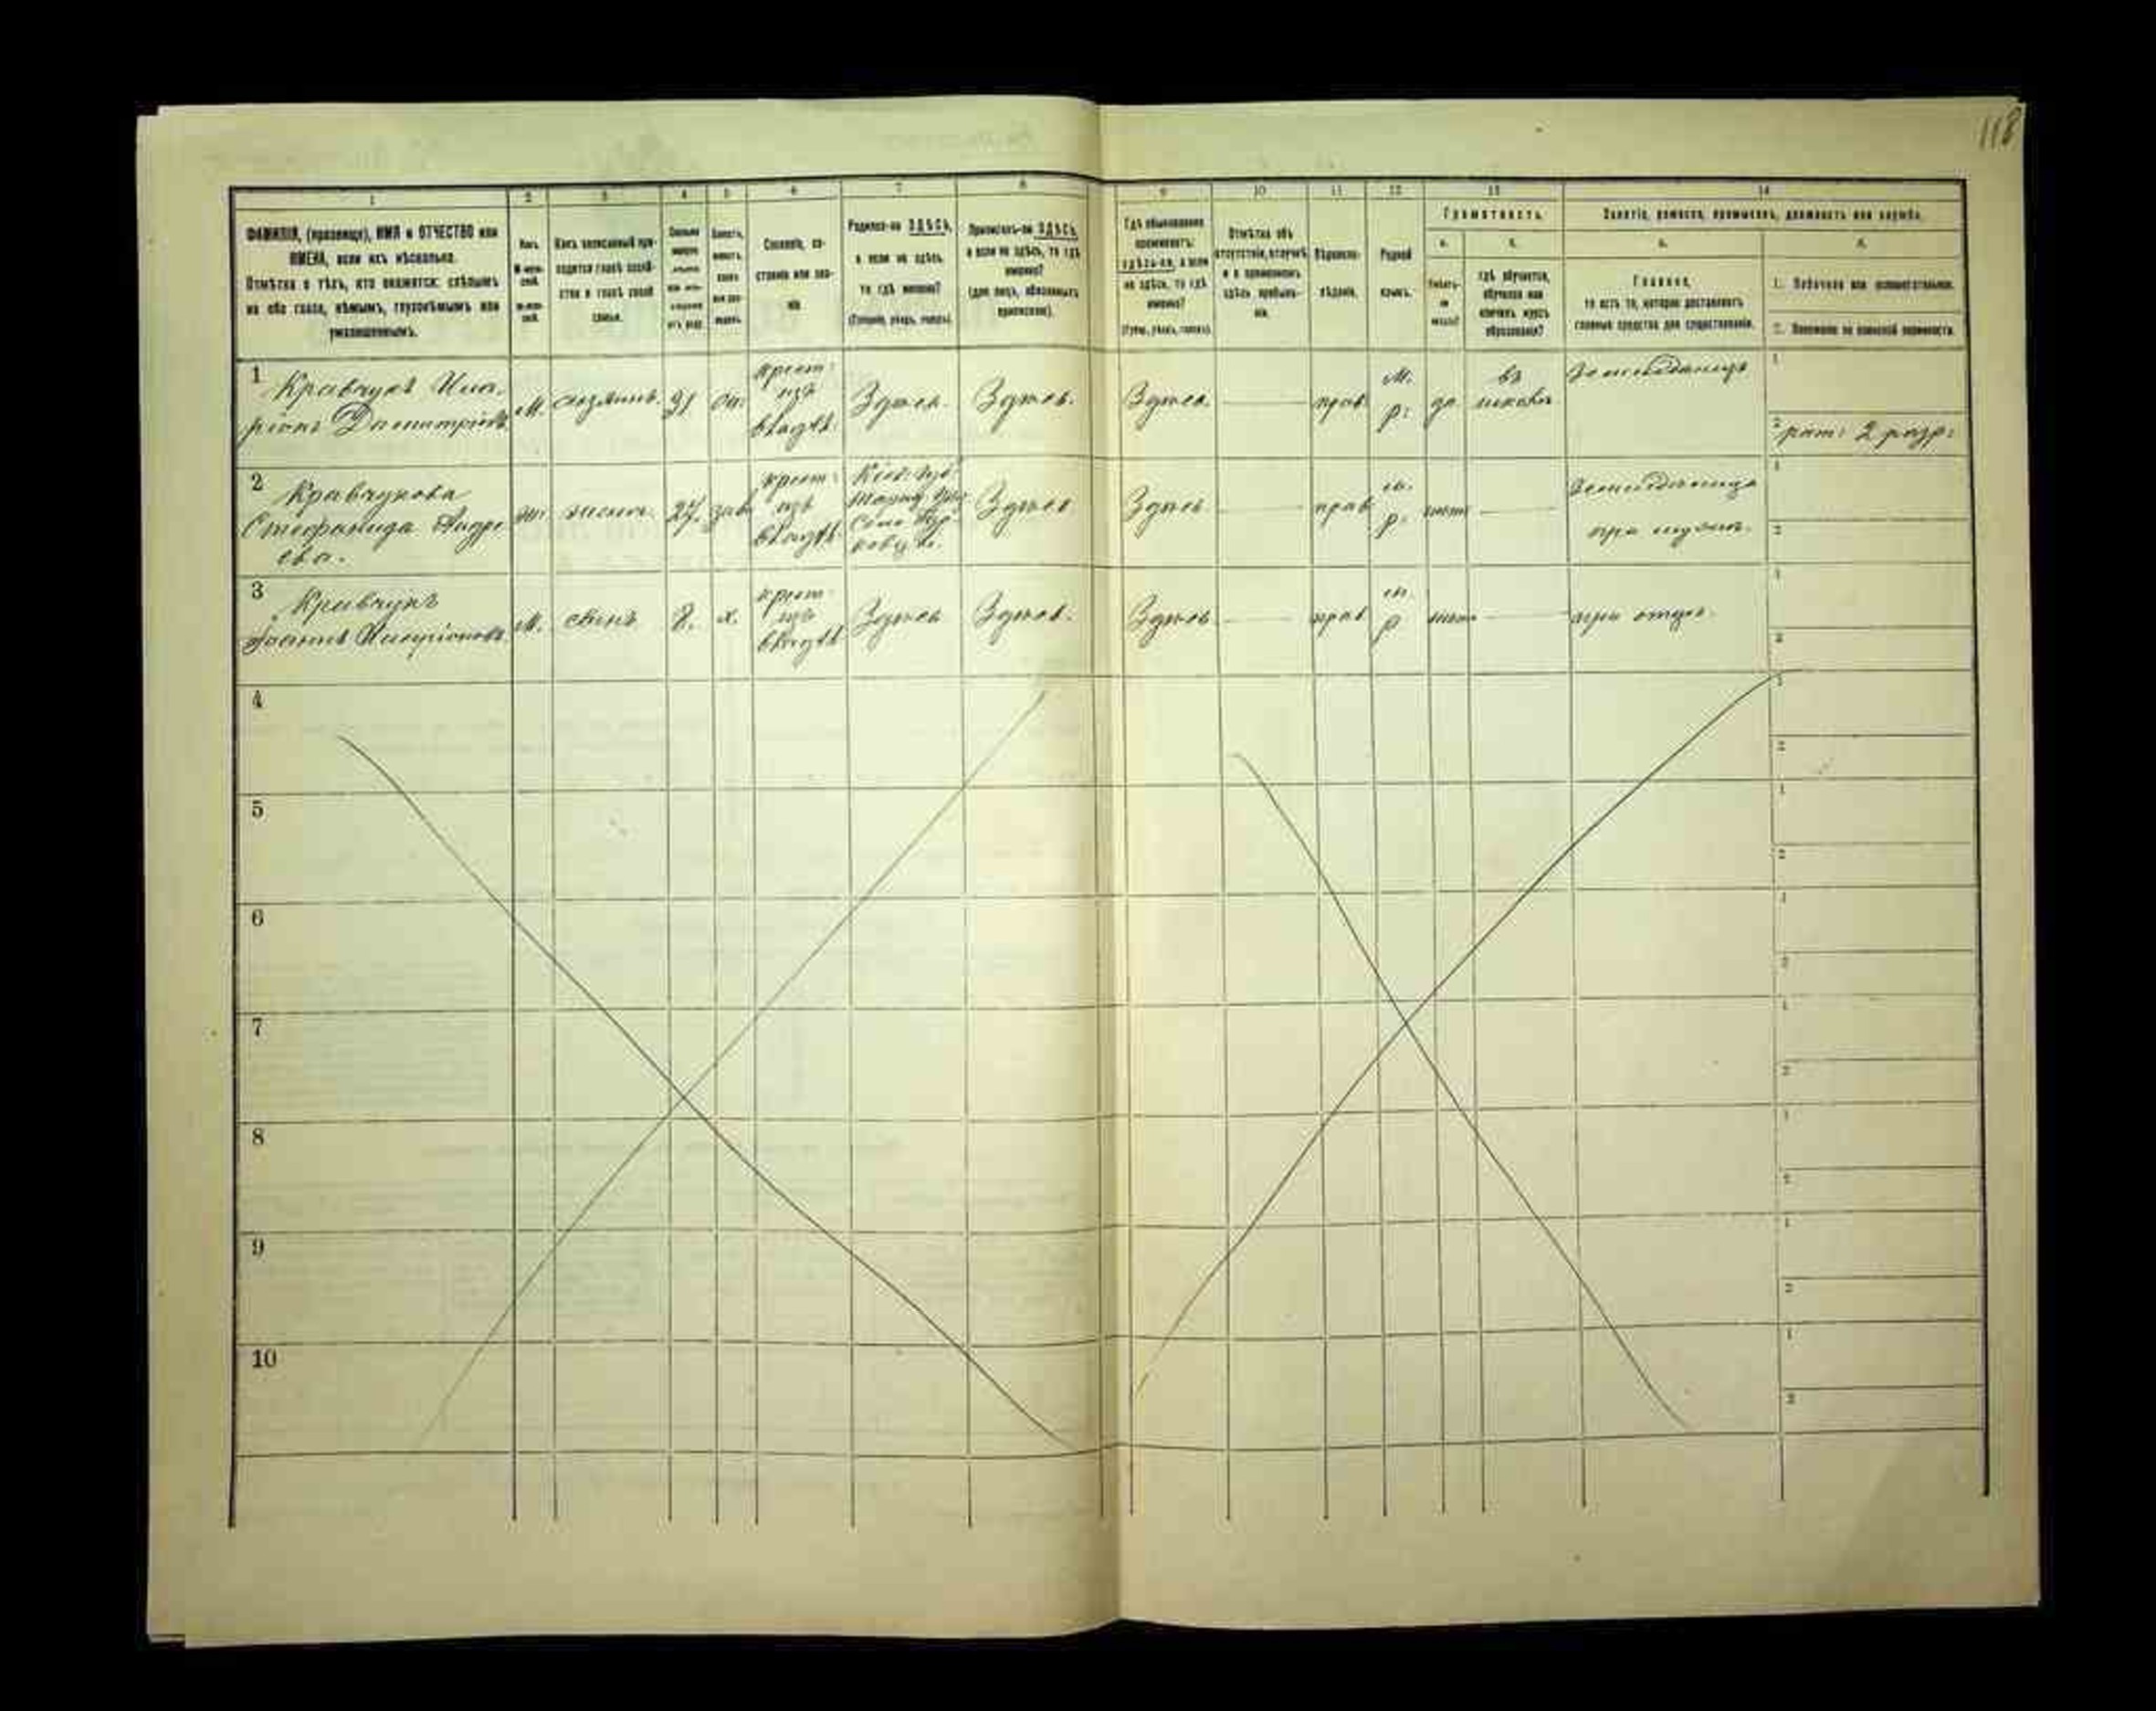 118
1 2 3 4 5 6 7 8 9 10 11 12 13 14
ФАМИЛІЯ, (прозвище), ИМЯ и ОТЧЕСТВО или
ИМЕНА, если ихъ нѣсколько.
Отмѣтка о тѣхъ, кто окажется: слѣпымъ
на оба глаза, нѣмымъ, глухонѣмымъ или
умалишеннымъ.
Какъ записанный при-
ходится главѣ хозяй-
ства и главѣ своей
семьи.
Сословіе, со-
стояніе или зва-
ніе
Родился-ли ЗДѢСЬ,
а если не здѣсь,
то гдѣ именно?
(Губернія, уѣздъ, городъ).
Приписанъ-ли ЗДѢСЬ,
а если не здѣсь, то гдѣ
именно?
(для лицъ, обязанныхъ
припискою).
Гдѣ обыкновенно
проживаетъ:
здѣсь-ли, а если
не здѣсь, то гдѣ
именно?
(Губер., уѣздъ, городъ).
Отмѣтка объ
отсутствіи, отлучкѣ
и о временномъ
здѣсь пребыва-
ніи.
Вѣроиспо-
вѣданіе.
Родной
языкъ.
Грамотность.
а. б.
Умѣетъ-
ли
читать?
гдѣ обучается,
обучался или
кончилъ курсъ
образованія?
Занятіе, ремесло, промыселъ, должность или служба.
а. б.
Главное,
то есть то, которое доставляетъ
главныя средства для существованія.
1. Побочное или вспомогательное.
2. Положеніе по воинской повинности.
1 Кравчукъ
Дмитріевъ М. хозяинъ 31 крест: изъ владѣ. Здѣсь. Здѣсь. Здѣсь прав. м. р. да въ школѣ Земледѣлецъ 1
2 рат: 2 разр:
2 Кравчукова
Стефанида Андре
ева. ж. жена. 27. зам. крест: изъ владѣ. Здѣсь Здѣсь прав. м. р. нѣтъ Земледѣлица при мужѣ. 1
2
3 Кравчукъ
Іоаннъ М. сынъ х. крест: изъ владѣ Здѣсь Здѣсь. Здѣсь прав. м. р нѣтъ при отцѣ. 1
2
4 1
2
5 1
2
6 1
2
7 1
2
8 1
2
9 1
2
10 1
2